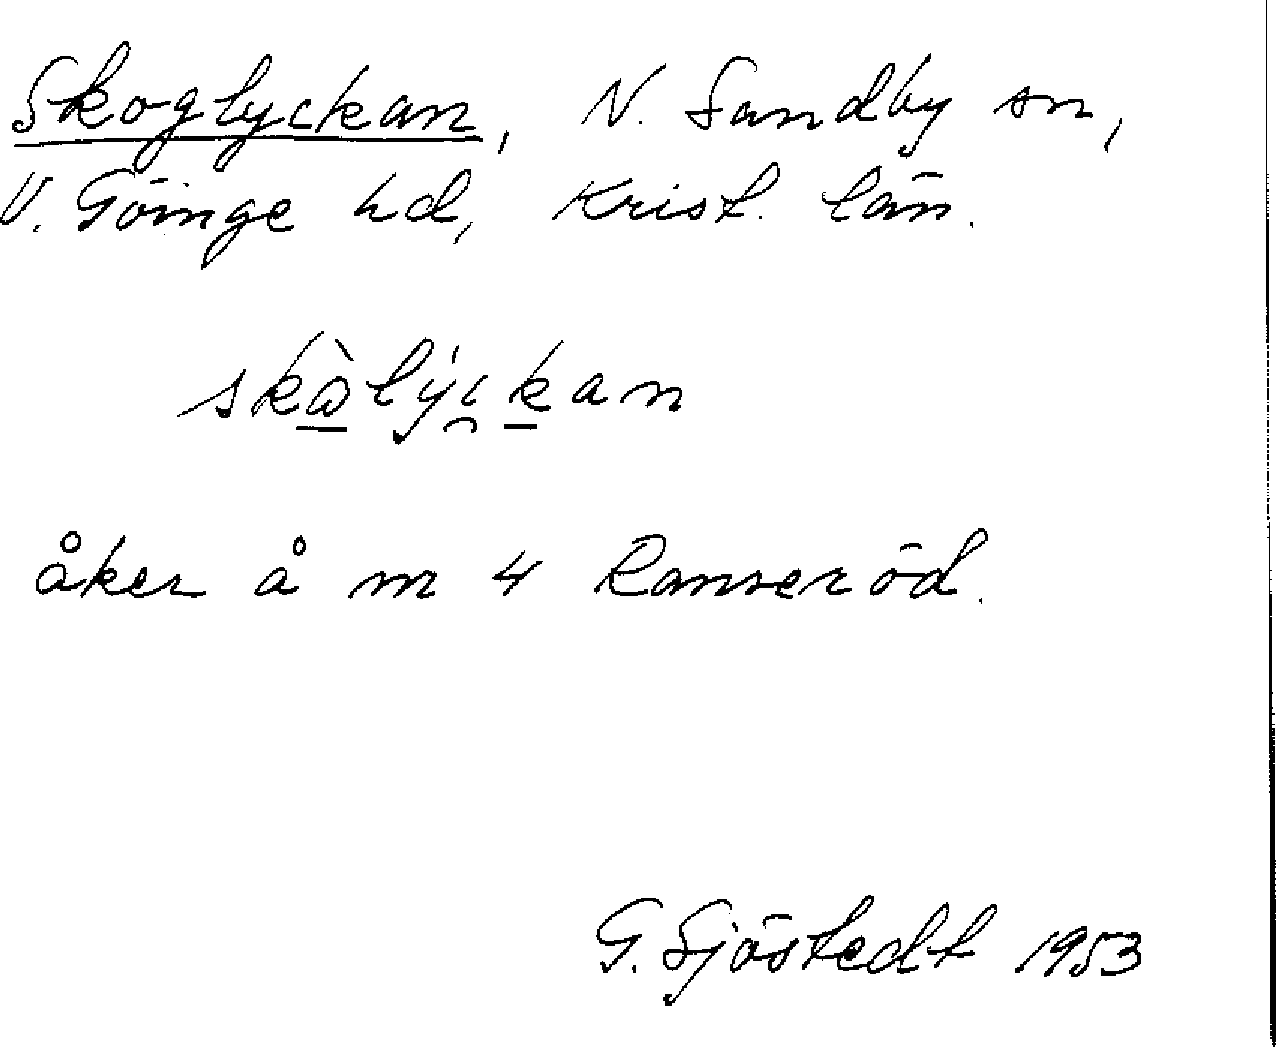 Skoglyckan, N. Sandby sn,
V. Göinge hd, Krist. län.
åker å m 4 Ranseröd.
G. Sjöstedt 1953